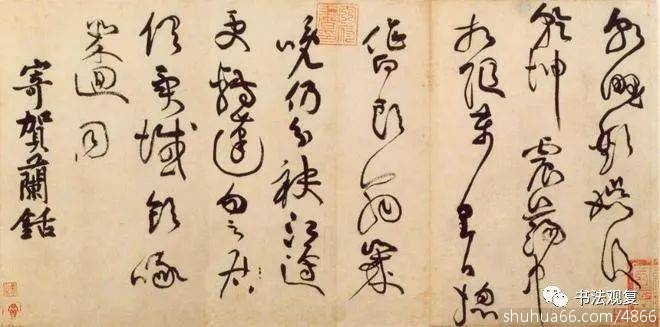 朝野歡娛後
乾坤震蕩中
相隨萬里日總
作白頭翁歲
晚仍分袂江邊
更轉蓬勿云居
俱異域飲啄
幾迴同
寄賀蘭銛
书法观复
shuhua66.com/4866